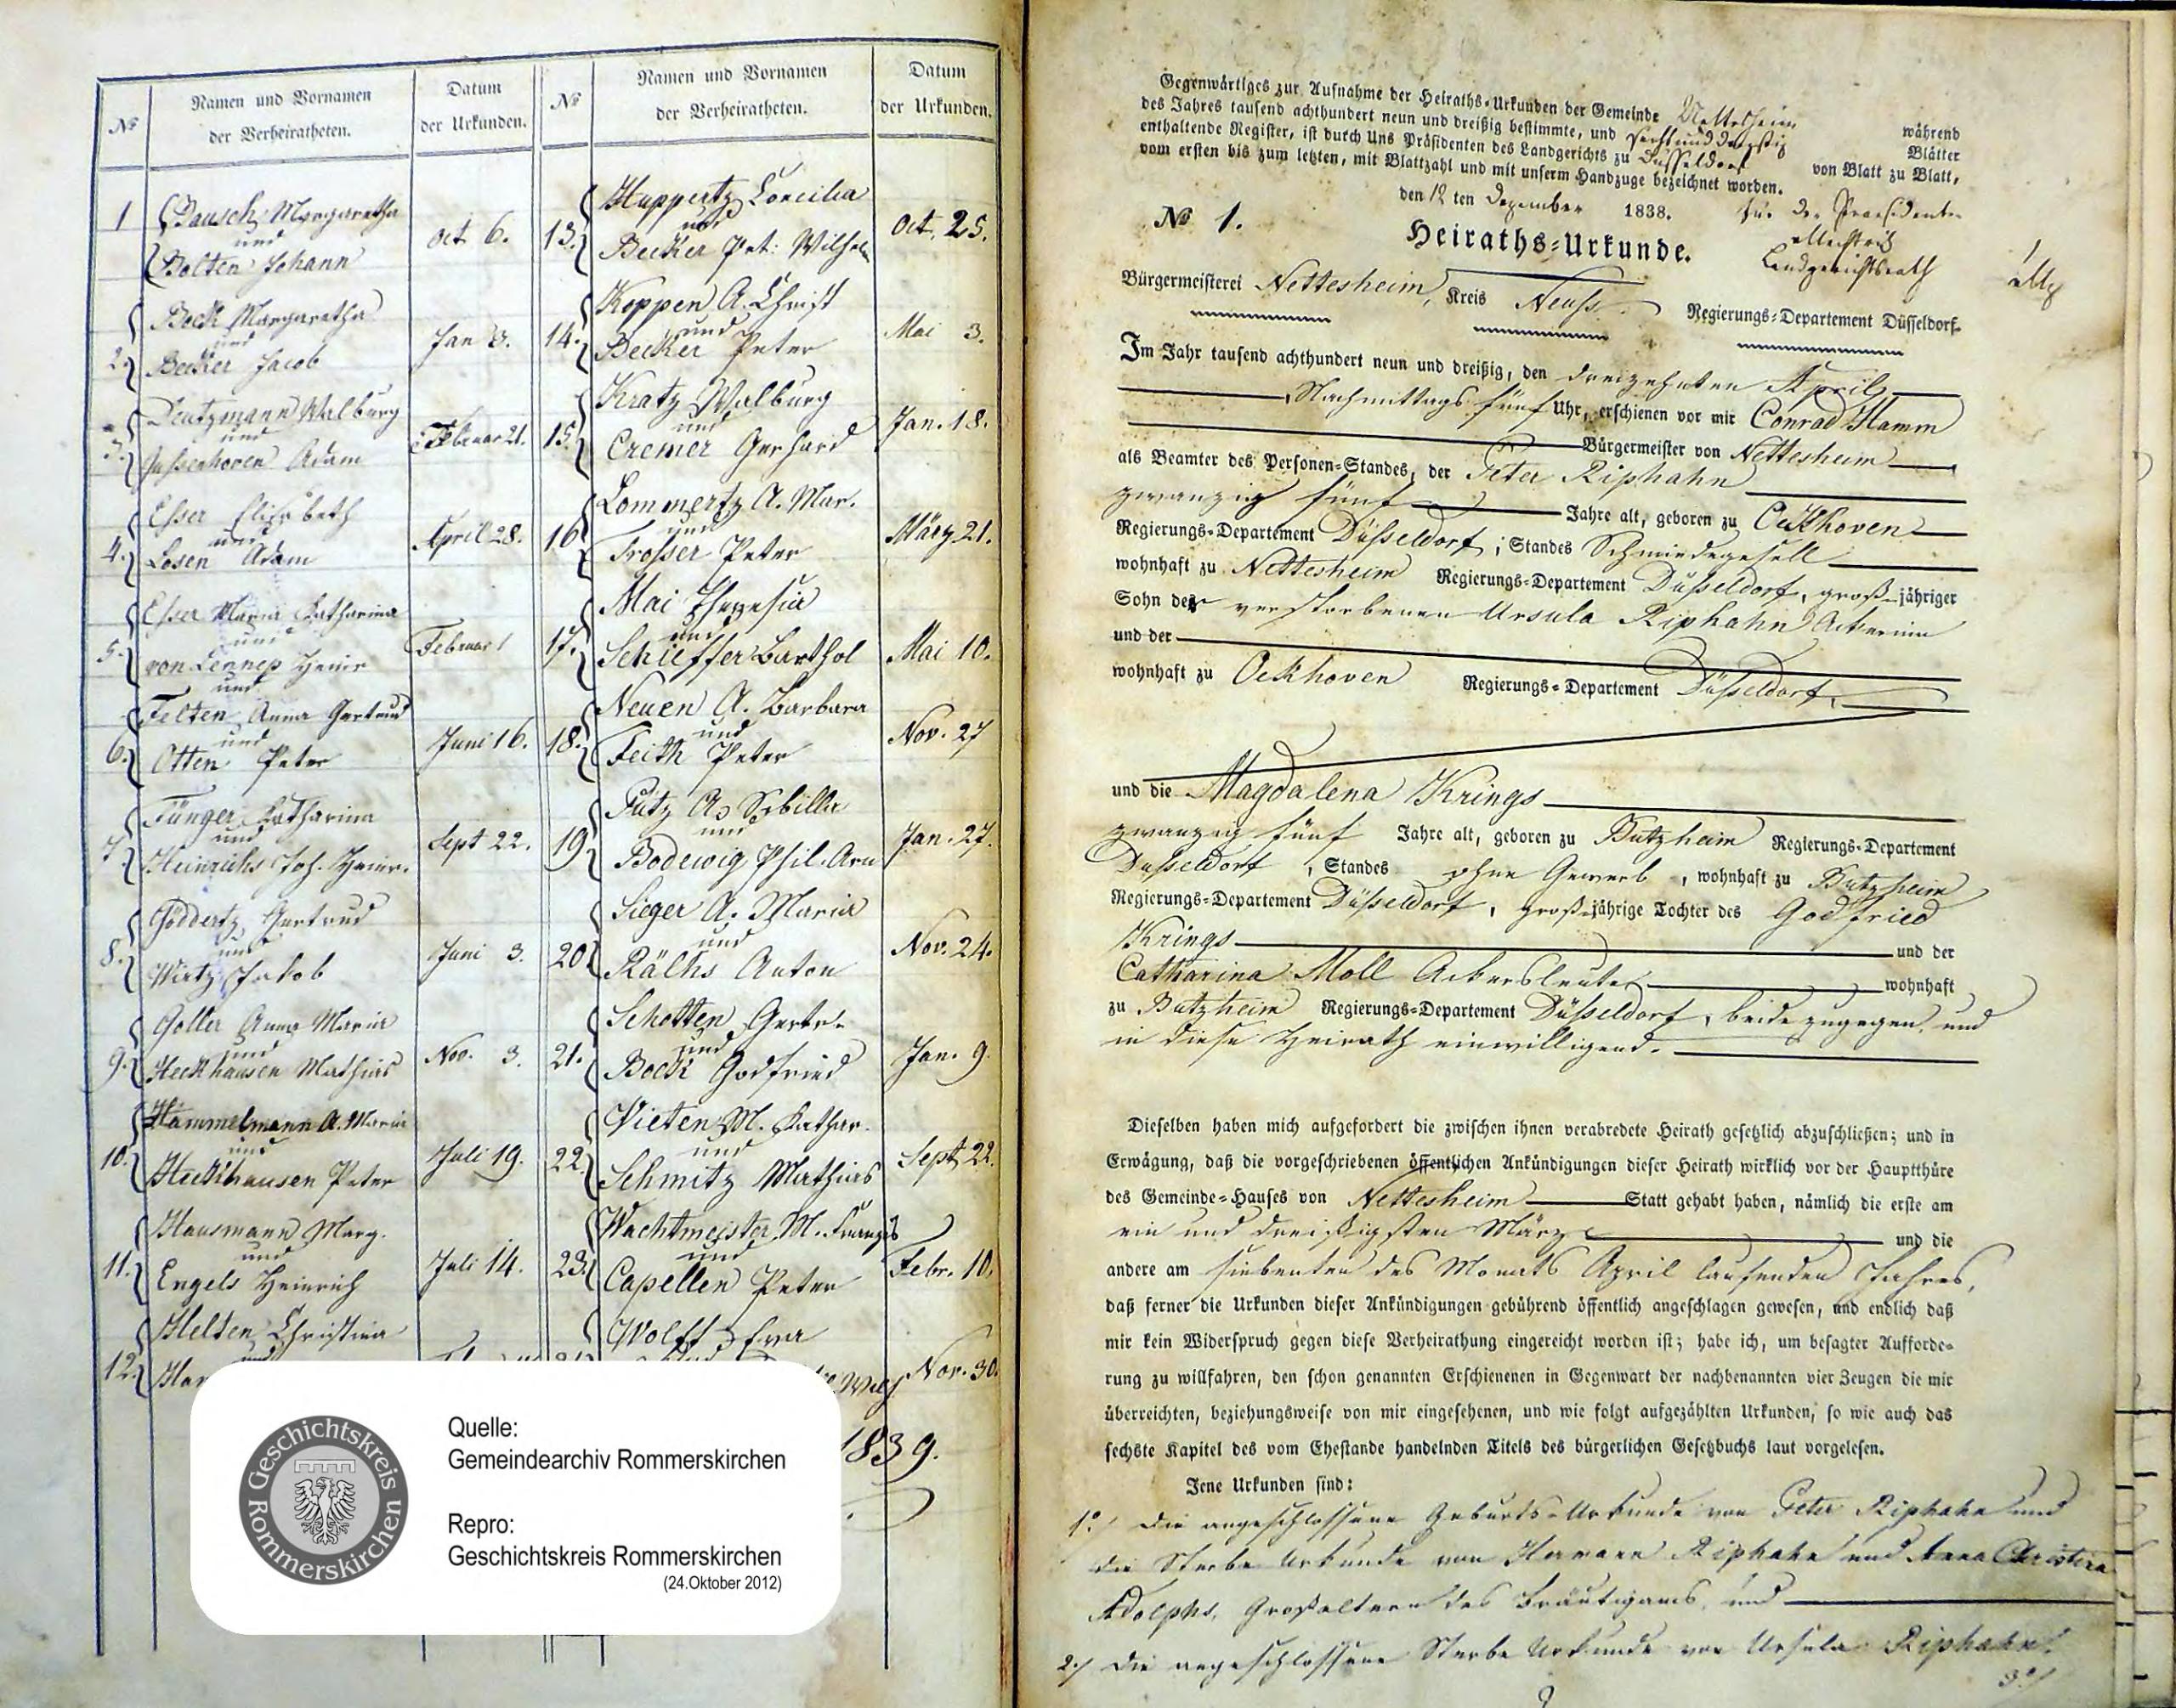 №
Namen und Vornamen
der Verheiratheten.
Datum
der Urkunden.
1
Bausch Margaretha
und
Bolten Johann
Oct 6.
2.
Bock Margaretha
und
Becker Jacob
Jan 3.
3.
Walburg
und
Adam
Februar 21.
4.
Esser Elisabeth
und
Losen Adam
April 28.
5.
Esser Maria Catharina
und
von Lennep Heinr
und
Februar 1
6.
Felten Anna Gertrud
und
Otten Peter
Juni 16.
7.
Fünger Catharina
und
Heinrichs Joh. Heinr.
Sept 22.
8.
Göddertz Gertrud
und
Wirtz Jakob
Juni 3.
9.
Golter Anna Maria
und
Heckhausen Mathias
Nov. 3.
10.
Hammelmann A. Maria
und
Heckhausen Peter
Juli 19.
11.
Hausmann Marg.
und
Engels Heinrich
Juli 14.
12.
Helten Christina
und
№
Namen und Vornamen
der Verheiratheten.
Datum
der Urkunden.
13.
Huppertz Coecilia
und
Becker Pet: Wilhelm
Oct. 25.
14.
Koppen A. Christ
und
Becker Peter
Mai 3.
15.
Kratz Walburg
und
Cremer Gerhard
Jan. 18.
16
Lommertz A. Mar.
und
Trosser Peter
März 21.
17.
Mai Theresia
und
Schieffer Barthol
Mai 10.
18.
Neuen A. Barbara
und
Feith Peter
Nov. 27
19
Pütz A. Sibilla
und
Bodewig Phil. Arn
Jan. 27.
20
Sieger A. Maria
und
Räths Anton
Nov. 24.
21.
Schotten Gertr.
und
Bock Godfried
Jan. 9.
22
Vieten M. Cathar.
und
Schmitz Mathias
Sept 22.
23.
Wachtmeister M. Franzis
und
Capellen Peter
Febr. 10.
Wolff Eva
Nov. 30.
1839.
Quelle:
Gemeindearchiv Rommerskirchen
Repro:
Geschichtskreis Rommerskirchen
(24.Oktober 2012)
Geschichtskreis Rommerskirchen
Gegenwärtiges zur Aufnahme der Heiraths-Urkunden der Gemeinde Nettesheim während
des Jahres tausend achthundert neun und dreißig bestimmte, und sechsunddreißig Blätter
enthaltende Register, ist durch Uns Präsidenten des Landgerichts zu Düsseldorf von Blatt zu Blatt,
vom ersten bis zum letzten, mit Blattzahl und mit unserm Handzuge bezeichnet worden.
den 12 ten Dezember 1838. Für den Praesidenten
Landgerichtsrath
№ 1.
Heiraths-Urkunde.
Bürgermeisterei Nettesheim, Kreis Neuss. Regierungs-Departement Düsseldorf.
Im Jahr tausend achthundert neun und dreißig, den dreizehnten April
Nachmittags fünf Uhr, erschienen vor mir Conrad Hamm
Bürgermeister von Nettesheim
als Beamter des Personen-Standes, der Peter Riphahn
zwanzig fünf Jahre alt, geboren zu Oekhoven
Regierungs-Departement Düsseldorf, Standes Schmiedegesell
wohnhaft zu Nettesheim Regierungs-Departement Düsseldorf, groß-jähriger
Sohn der verstorbenen Ursula Riphahn Ackerinn
und der
wohnhaft zu Oekhoven Regierungs-Departement Düsseldorf.
und die Magdalena Krings
zwanzig fünf Jahre alt, geboren zu Butzheim Regierungs-Departement
Düsseldorf, Standes ohne Gewerb, wohnhaft zu Butzheim
Regierungs-Departement Düsseldorf, groß-jährige Tochter des Godfried
Krings und der
Catharina Moll Ackersleute wohnhaft
zu Butzheim Regierungs-Departement Düsseldorf, beide zugegen und
in diese Heirath einwilligend.
Dieselben haben mich aufgefordert die zwischen ihnen verabredete Heirath gesetzlich abzuschließen; und in
Erwägung, daß die vorgeschriebenen öffentlichen Ankündigungen dieser Heirath wirklich vor der Hauptthüre
des Gemeinde-Hauses von Nettesheim Statt gehabt haben, nämlich die erste am
ein und dreißigsten März und die
andere am siebenten des Monats April laufenden Jahres,
daß ferner die Urkunden dieser Ankündigungen gebührend öffentlich angeschlagen gewesen, und endlich daß
mir kein Widerspruch gegen diese Verheirathung eingereicht worden ist; habe ich, um besagter Aufforde-
rung zu willfahren, den schon genannten Erschienenen in Gegenwart der nachbenannten vier Zeugen die mir
überreichten, beziehungsweise von mir eingesehenen, und wie folgt aufgezählten Urkunden, so wie auch das
sechste Kapitel des vom Ehestande handelnden Titels des bürgerlichen Gesetzbuchs laut vorgelesen.
Jene Urkunden sind:
1o/ Die angeschlossene Geburts-Urkunde von Peter Riphahn und
die Sterbe Urkunde von Hermann Riphahn und Anna Christina
Adolphs, Großaltern des Bräutigams, und
2./ die angeschlossene Sterbe Urkunde von Ursula Riphahn.
3o/